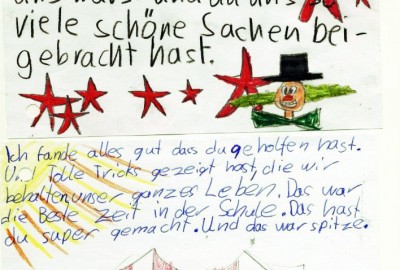 viele schöne Sachen bei-
gebracht hast.
Ich fande alles gut dass du geholfen hast.
U.d Tolle Tricks gezeigt hast, die wir
behalten unser ganzes Leben. Das war
die Beste Zeit in der Schule. Das hast
du super gemacht. Und das war spitze.